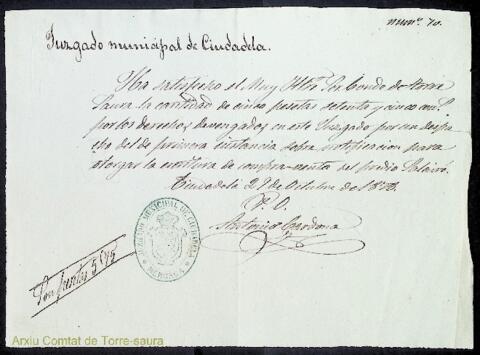 num.º 70.
Juzgado municipal de Ciudadela.
Ha satisfecho el Muy Iltre. Sr. Conde de Torre
Saura la cantidad de cinco pesetas setenta y cinco cent.s
por los derechos devengados en este Juzgado por un despa
cho del de primera instancia sobre notificacion para
otorgar la escritura de compra-venta del predio
Ciudadela 29 de Octubre de
P. O.
Antonio Cardona
JUZGADO MUNICIPAL DE CIUDADELA
MENORCA
Son 5'75
Arxiu Comtat de Torre-saura